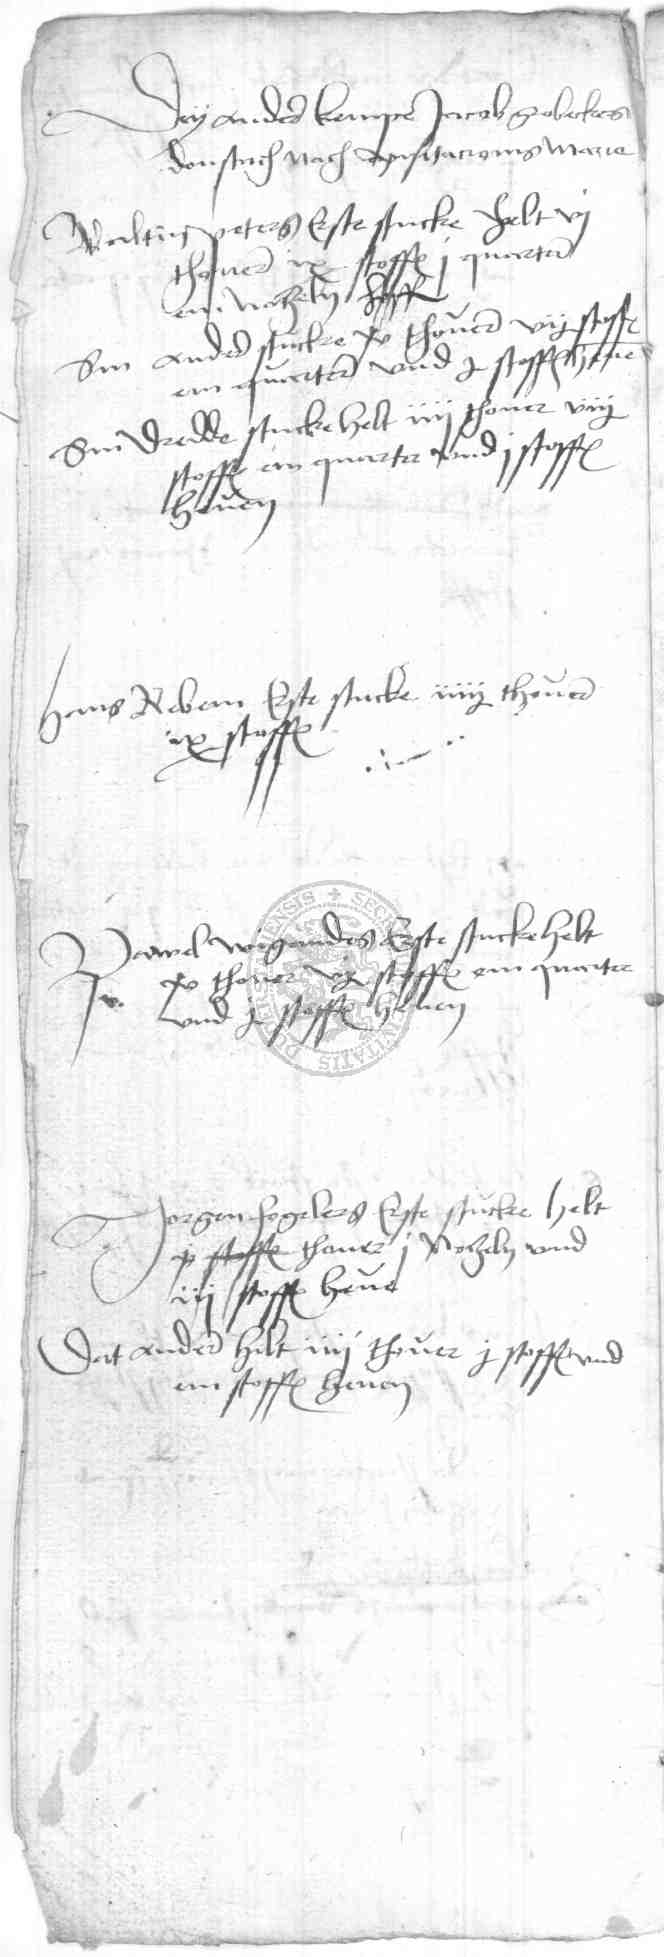 Dey ander kempe Jacob gobelers
donstach nach visitacionis Marie
Valtin peters Erste stucke helt vj
thouer ix stoffe j quarter
ein nohelyn
Sin ander stucke x thouer vij stoffe
ein quarter vnd j stoffe heue
Sin dredde stucke helt iiij thouer viij
stoffe ein quarter vnd j stoffe
heuen
hans Reben Erste stucke iiij thouer
ix stoffe
Pauel wigandes Erste stucke helt
x thouer vj stoffe ein quarter
vnd j stoffe heuen
Jorgen fogelers Erste stucke helt
x stoffe thouer j nohelyn vnd
iij stoffe heue
Dat ander helt iiij thouer j stoffe vnd
ein stoffe heuen
SECRETUM CIVITATIS